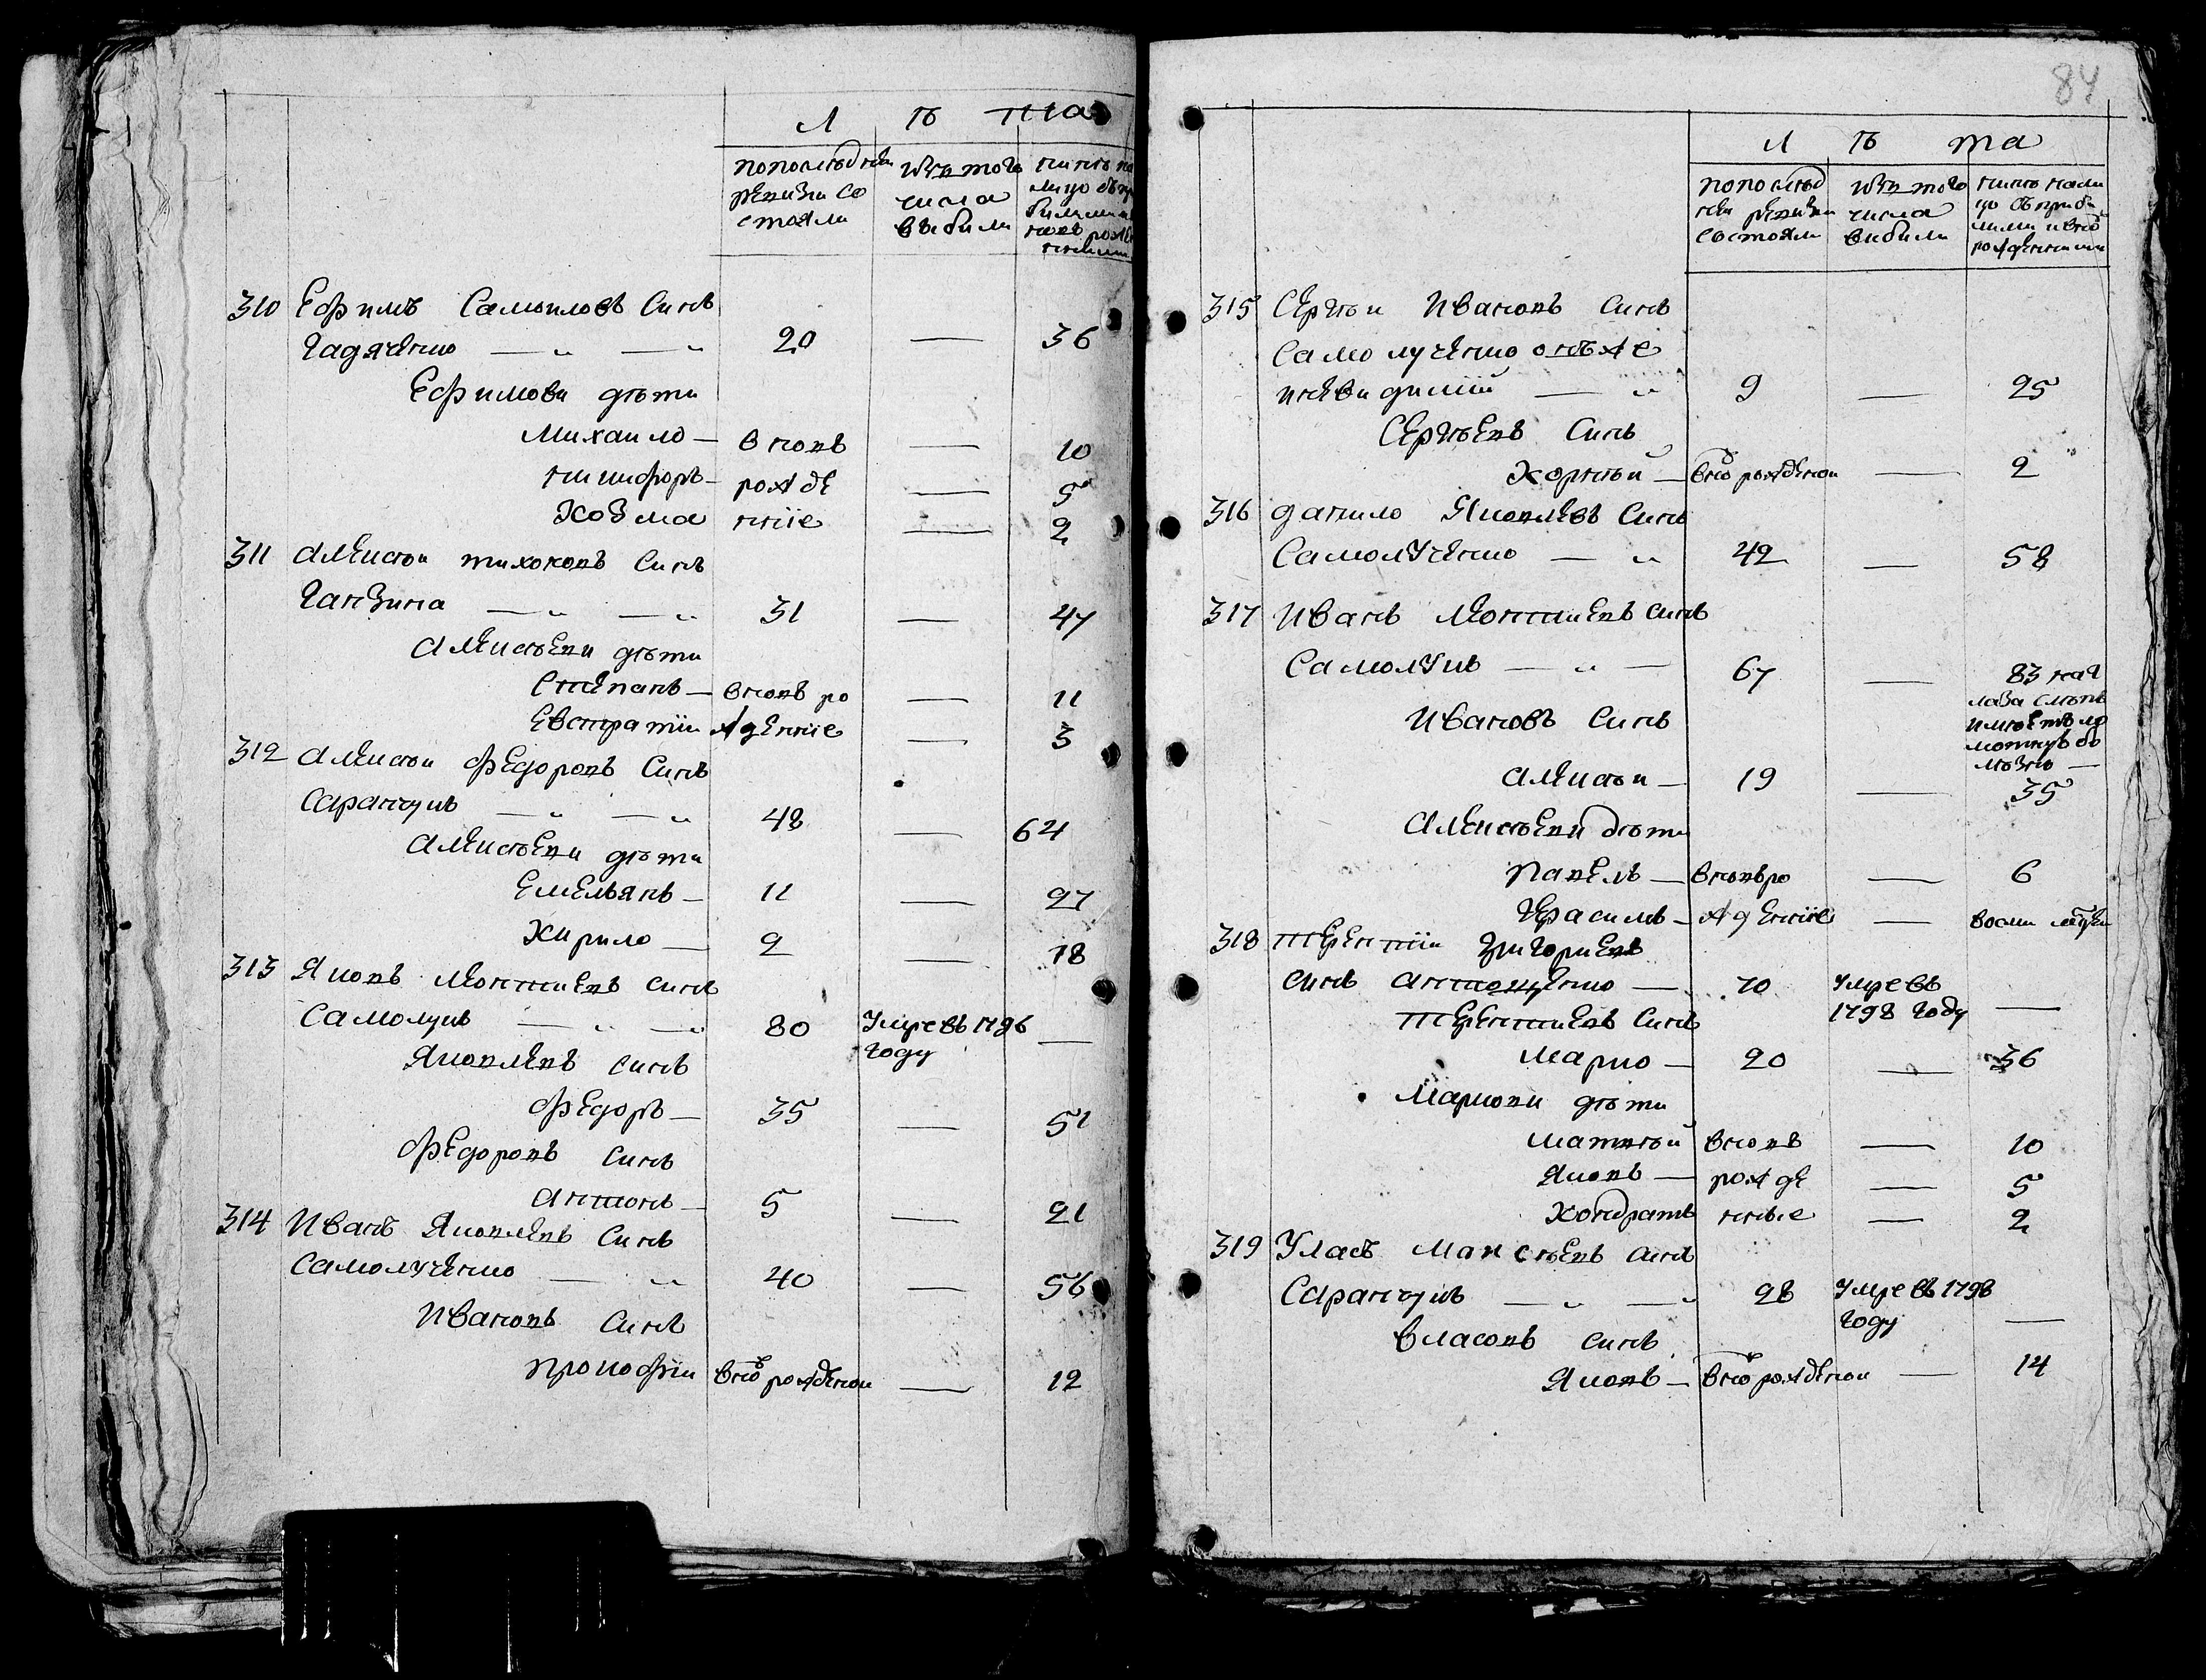 Л ѣ та
по последней из того ныне на
ревизии со числа лицо с при
стояли выбыли былыми и
вновь рожде
нными
310 Ефимъ Самоиловъ Синъ
Гадяченко — „ — „ 20 — 36
Ефимови дѣти
Михаило — вновъ — 10
никифоръ — рожде — 5
Козма нніе — 2
311 Алексѣи тихоновъ Синъ
Ганзина — „ — „ 31 — 47
Алексѣеви дѣти
Степанъ — вновъ ро — 11
Евстратіи жденніе — 3
312 Алексѣи Федоровъ Синъ
Саранчукъ — „ — „ 48 — 64
Алексѣеви дѣти
Емельянъ — 11 — 27
Кирило — 2 — 18
313 Яковъ Леонтиевъ Синъ
Самолукъ — „ — „ 80 Умре въ 1796 —
году
Яковлевъ синъ
Федоръ — 35 — 51
Федоровъ Синъ
Антонъ — 5 — 21
314 Иванъ Яковлевъ Синъ
Самолученко — „ 40 — 56
Ивановъ Синъ
Прокофіи вновъ рожденои — 12
84
Л ѣ та
по послед из того ныне нали
ней ревизии числа цо с приби
состояли вибили лими и вно
рожденними
315 Сергѣи Ивановъ Синъ
Самолученко онъ же
и неви димій — „ 9 — 25
Сергѣевъ Синъ
Корнѣй — вно рожденои — 2
316 данило Яковлевъ Синъ
Самолученко — „ 42 — 58
317 Иванъ Леонтиевъ Синъ
Самолукъ — „ — 67 — 83 на г
лаза слѣпъ
имѣетъ ло
мотную бо
лѣзнь —
Ивановъ Синъ
Алексѣи — 19 — 35
Алексѣеви дѣти
Павелъ — вновъ ро — 6
Герасимъ — жденніе — восми мѣ
318 терентіи Григориевъ
синъ Антощенко — 70 Умре въ
1798 году —
терентиевъ Синъ
Марко — 20 — 36
Маркови дѣти
матвѣй вновъ — 10
Яковъ — рожде — 5
Кондратъ нние — 2
319 Уласъ Мап сѣевъ синъ
Саранчукъ — „ — „ 28 Умре въ 1798
году —
Власовъ синъ
Яковъ — вно рожденои — 14